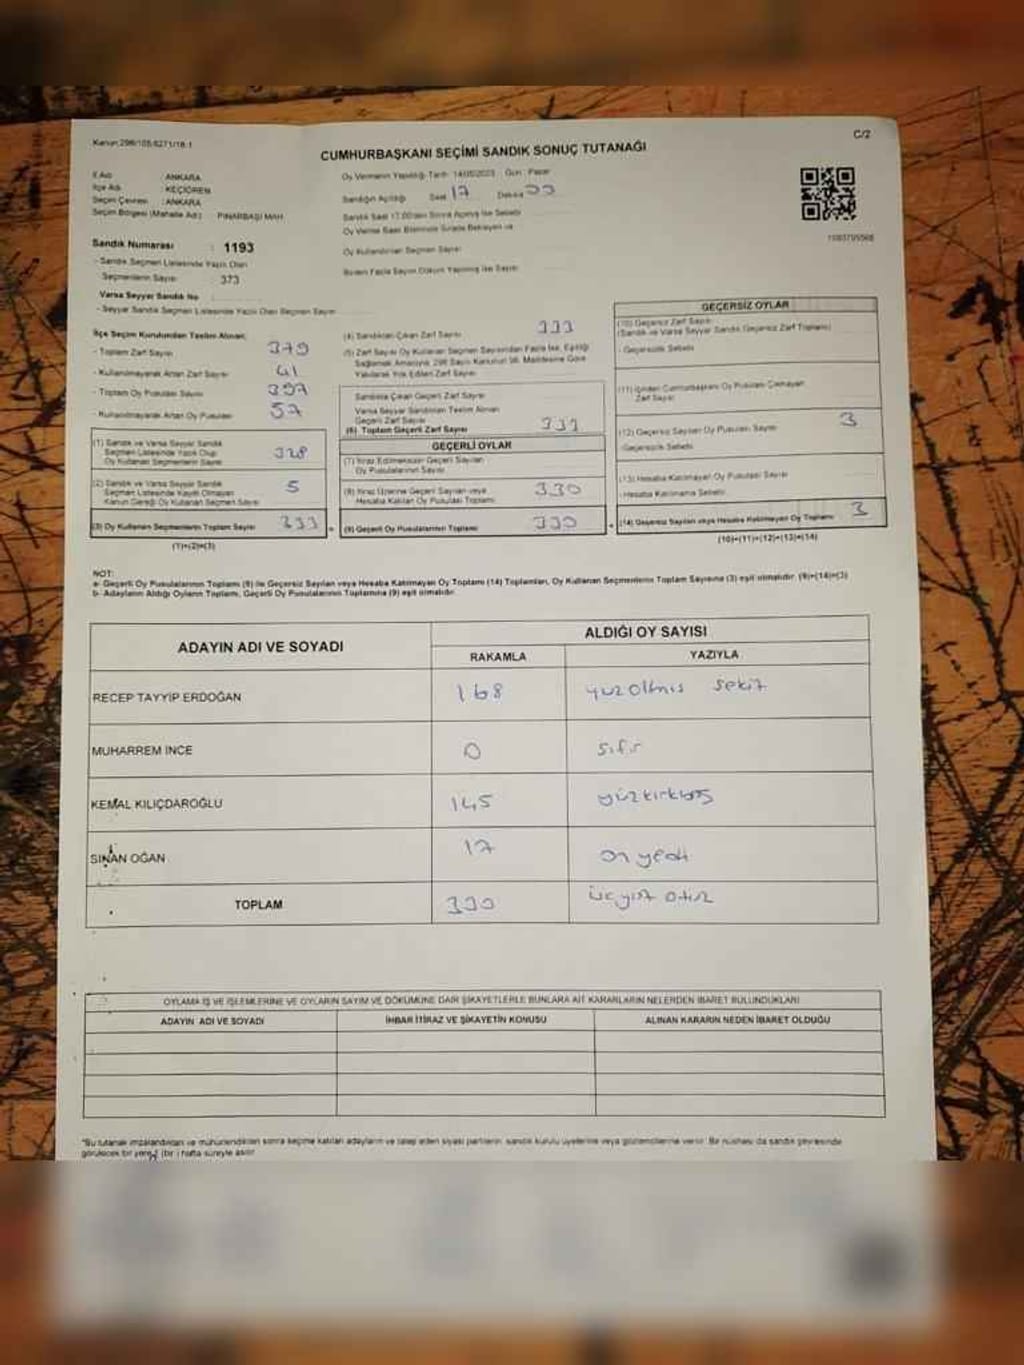 Kanun:298/105,6271/18.1
C/2
CUMHURBAŞKANI SEÇİMİ SANDIK SONUÇ TUTANAĞI
İl Adı : ANKARA
İlçe Adı : KEÇİÖREN
Seçim Çevresi : ANKARA
Seçim Bölgesi (Mahalle Adı) : PINARBAŞI MAH
Sandık Numarası : 1193
- Sandık Seçmen Listesinde Yazılı Olan
Seçmenlerin Sayısı : 373
Varsa Seyyar Sandık No
- Seyyar Sandık Seçmen Listesinde Yazılı Olan Seçmen Sayısı
Oy Vermenin Yapıldığı Tarih: 14/05/2023 Gün: Pazar
Sandığın Açıldığı Saat 17 Dakika
Sandık Saat 17:00'den Sonra Açılmış İse Sebebi
Oy Verme Saati Bitiminde Sırada Bekleyen ve
Oy Kullandırılan Seçmen Sayısı
Birden Fazla Sayım Döküm Yapılmış İse Sayısı
İlçe Seçim Kurulundan Teslim Alınan;
- Toplam Zarf Sayısı 379
- Kullanılmayarak Artan Zarf Sayısı 41
- Toplam Oy Pusulası Sayısı 397
- Kullanılmayarak Artan Oy Pusulası 57
(1) Sandık ve Varsa Seyyar Sandık
Seçmen Listesinde Yazılı Olup
Oy Kullanan Seçmenlerin Sayısı 328
(2) Sandık ve Varsa Seyyar Sandık
Seçmen Listesinde Kayıtlı Olmayan
Kanun Gereği Oy Kullanan Seçmen Sayısı 5
(3) Oy Kullanan Seçmenlerin Toplam Sayısı 333
(1)+(2)=(3)
(4) Sandıktan Çıkan Zarf Sayısı 333
(5) Zarf Sayısı Oy Kullanan Seçmen Sayısından Fazla İse, Eşitliği
Sağlamak Amacıyla, 298 Sayılı Kanunun 98. Maddesine Göre
Yakılarak Yok Edilen Zarf Sayısı
Sandıkta Çıkan Geçerli Zarf Sayısı
Varsa Seyyar Sandıktan Teslim Alınan
Geçerli Zarf Sayısı
(6) Toplam Geçerli Zarf Sayısı 333
GEÇERLİ OYLAR
(7) İtiraz Edilmeksizin Geçerli Sayılan
Oy Pusulalarının Sayısı
(8) İtiraz Üzerine Geçerli Sayılan veya
Hesaba Katılan Oy Pusulası Toplamı 330
(9) Geçerli Oy Pusulalarının Toplamı 330
GEÇERSİZ OYLAR
(10) Geçersiz Zarf Sayısı
(Sandık ve Varsa Seyyar Sandık Geçersiz Zarf Toplamı)
- Geçersizlik Sebebi
(11) İçinden Cumhurbaşkanı Oy Pusulası Çıkmayan
Zarf Sayısı
(12) Geçersiz Sayılan Oy Pusulası Sayısı 3
-Geçersizlik Sebebi
(13) Hesaba Katılmayan Oy Pusulası Sayısı
- Hesaba Katılmama Sebebi
(14) Geçersiz Sayılan veya Hesaba Katılmayan Oy Toplamı 3
(10)+(11)+(12)+(13)=(14)
NOT:
a- Geçerli Oy Pusulalarının Toplamı (9) ile Geçersiz Sayılan veya Hesaba Katılmayan Oy Toplamı (14) Toplamları, Oy Kullanan Seçmenlerin Toplam Sayısına (3) eşit olmalıdır. (9)+(14)=(3)
b- Adayların Aldığı Oyların Toplamı, Geçerli Oy Pusulalarının Toplamına (9) eşit olmalıdır.
ADAYIN ADI VE SOYADI ALDIĞI OY SAYISI
RAKAMLA YAZIYLA
RECEP TAYYİP ERDOĞAN 168 yüzaltmış sekiz
MUHARREM İNCE 0 sıfır
KEMAL KILIÇDAROĞLU 145 yüzkırkbeş
SİNAN OĞAN 17 on yedi
TOPLAM 330 üçyüz otuz
OYLAMA İŞ VE İŞLEMLERİNE VE OYLARIN SAYIM VE DÖKÜMÜNE DAİR ŞİKAYETLERLE BUNLARA AİT KARARLARIN NELERDEN İBARET BULUNDUKLARI
ADAYIN ADI VE SOYADI İHBAR İTİRAZ VE ŞİKAYETİN KONUSU ALINAN KARARIN NEDEN İBARET OLDUĞU
*Bu tutanak imzalandıktan ve mühürlendikten sonra seçime katılan adayların ve talep eden siyasi partilerin sandık kurulu üyelerine veya gözlemcilerine verilir. Bir nüshası da sandık çevresinde
görülecek bir yere 1 (bir) hafta süreyle asılır.